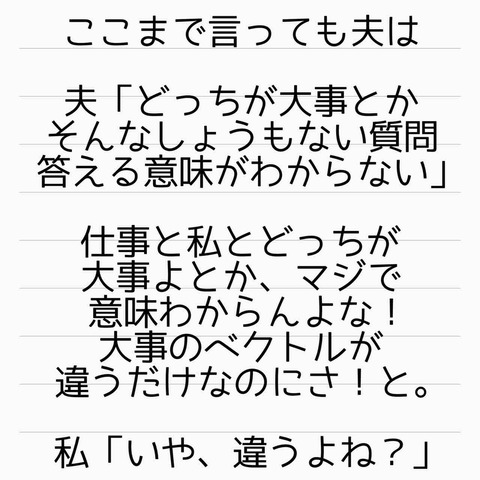 ここまで言っても夫は
夫「どっちが大事とか
そんなしょうもない質問
答える意味がわからない」
仕事と私とどっちが
大事よとか、マジで
意味わからんよな！
大事のベクトルが
違うだけなのにさ！と。
私「いや、違うよね？」